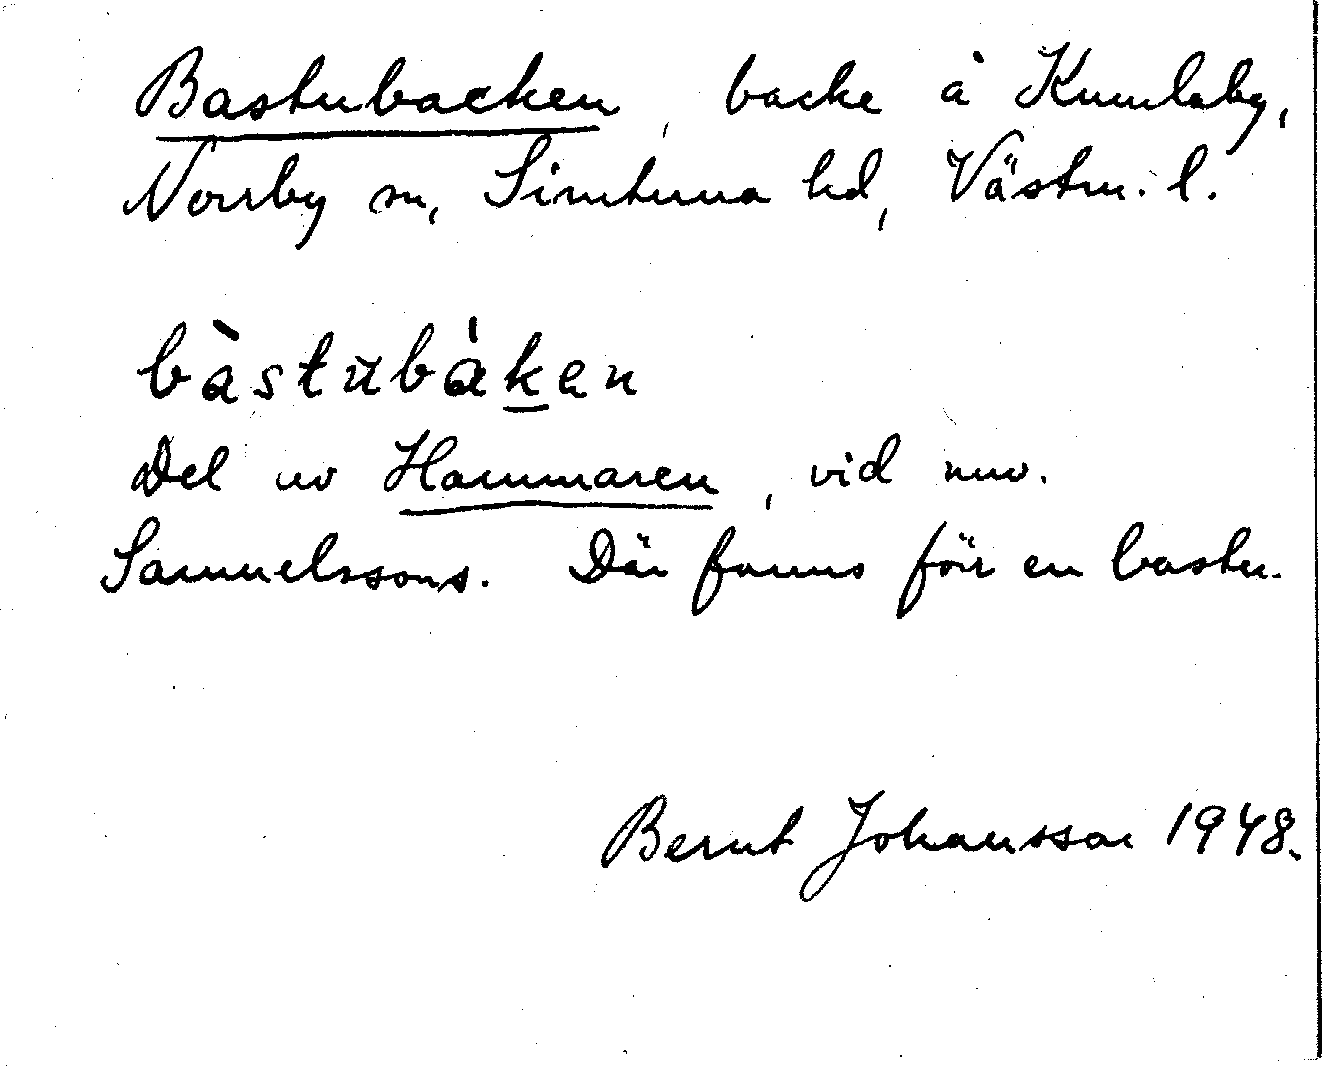 Bastubacken, backe å Kumlaby,
Norrby sn, Simtuna hd, Västm. l.
bàstubáken
Del av Hammaren, vid nuv.
Samuelssons. Där fanns förr en bastu.
Bernt Johansson 1948.